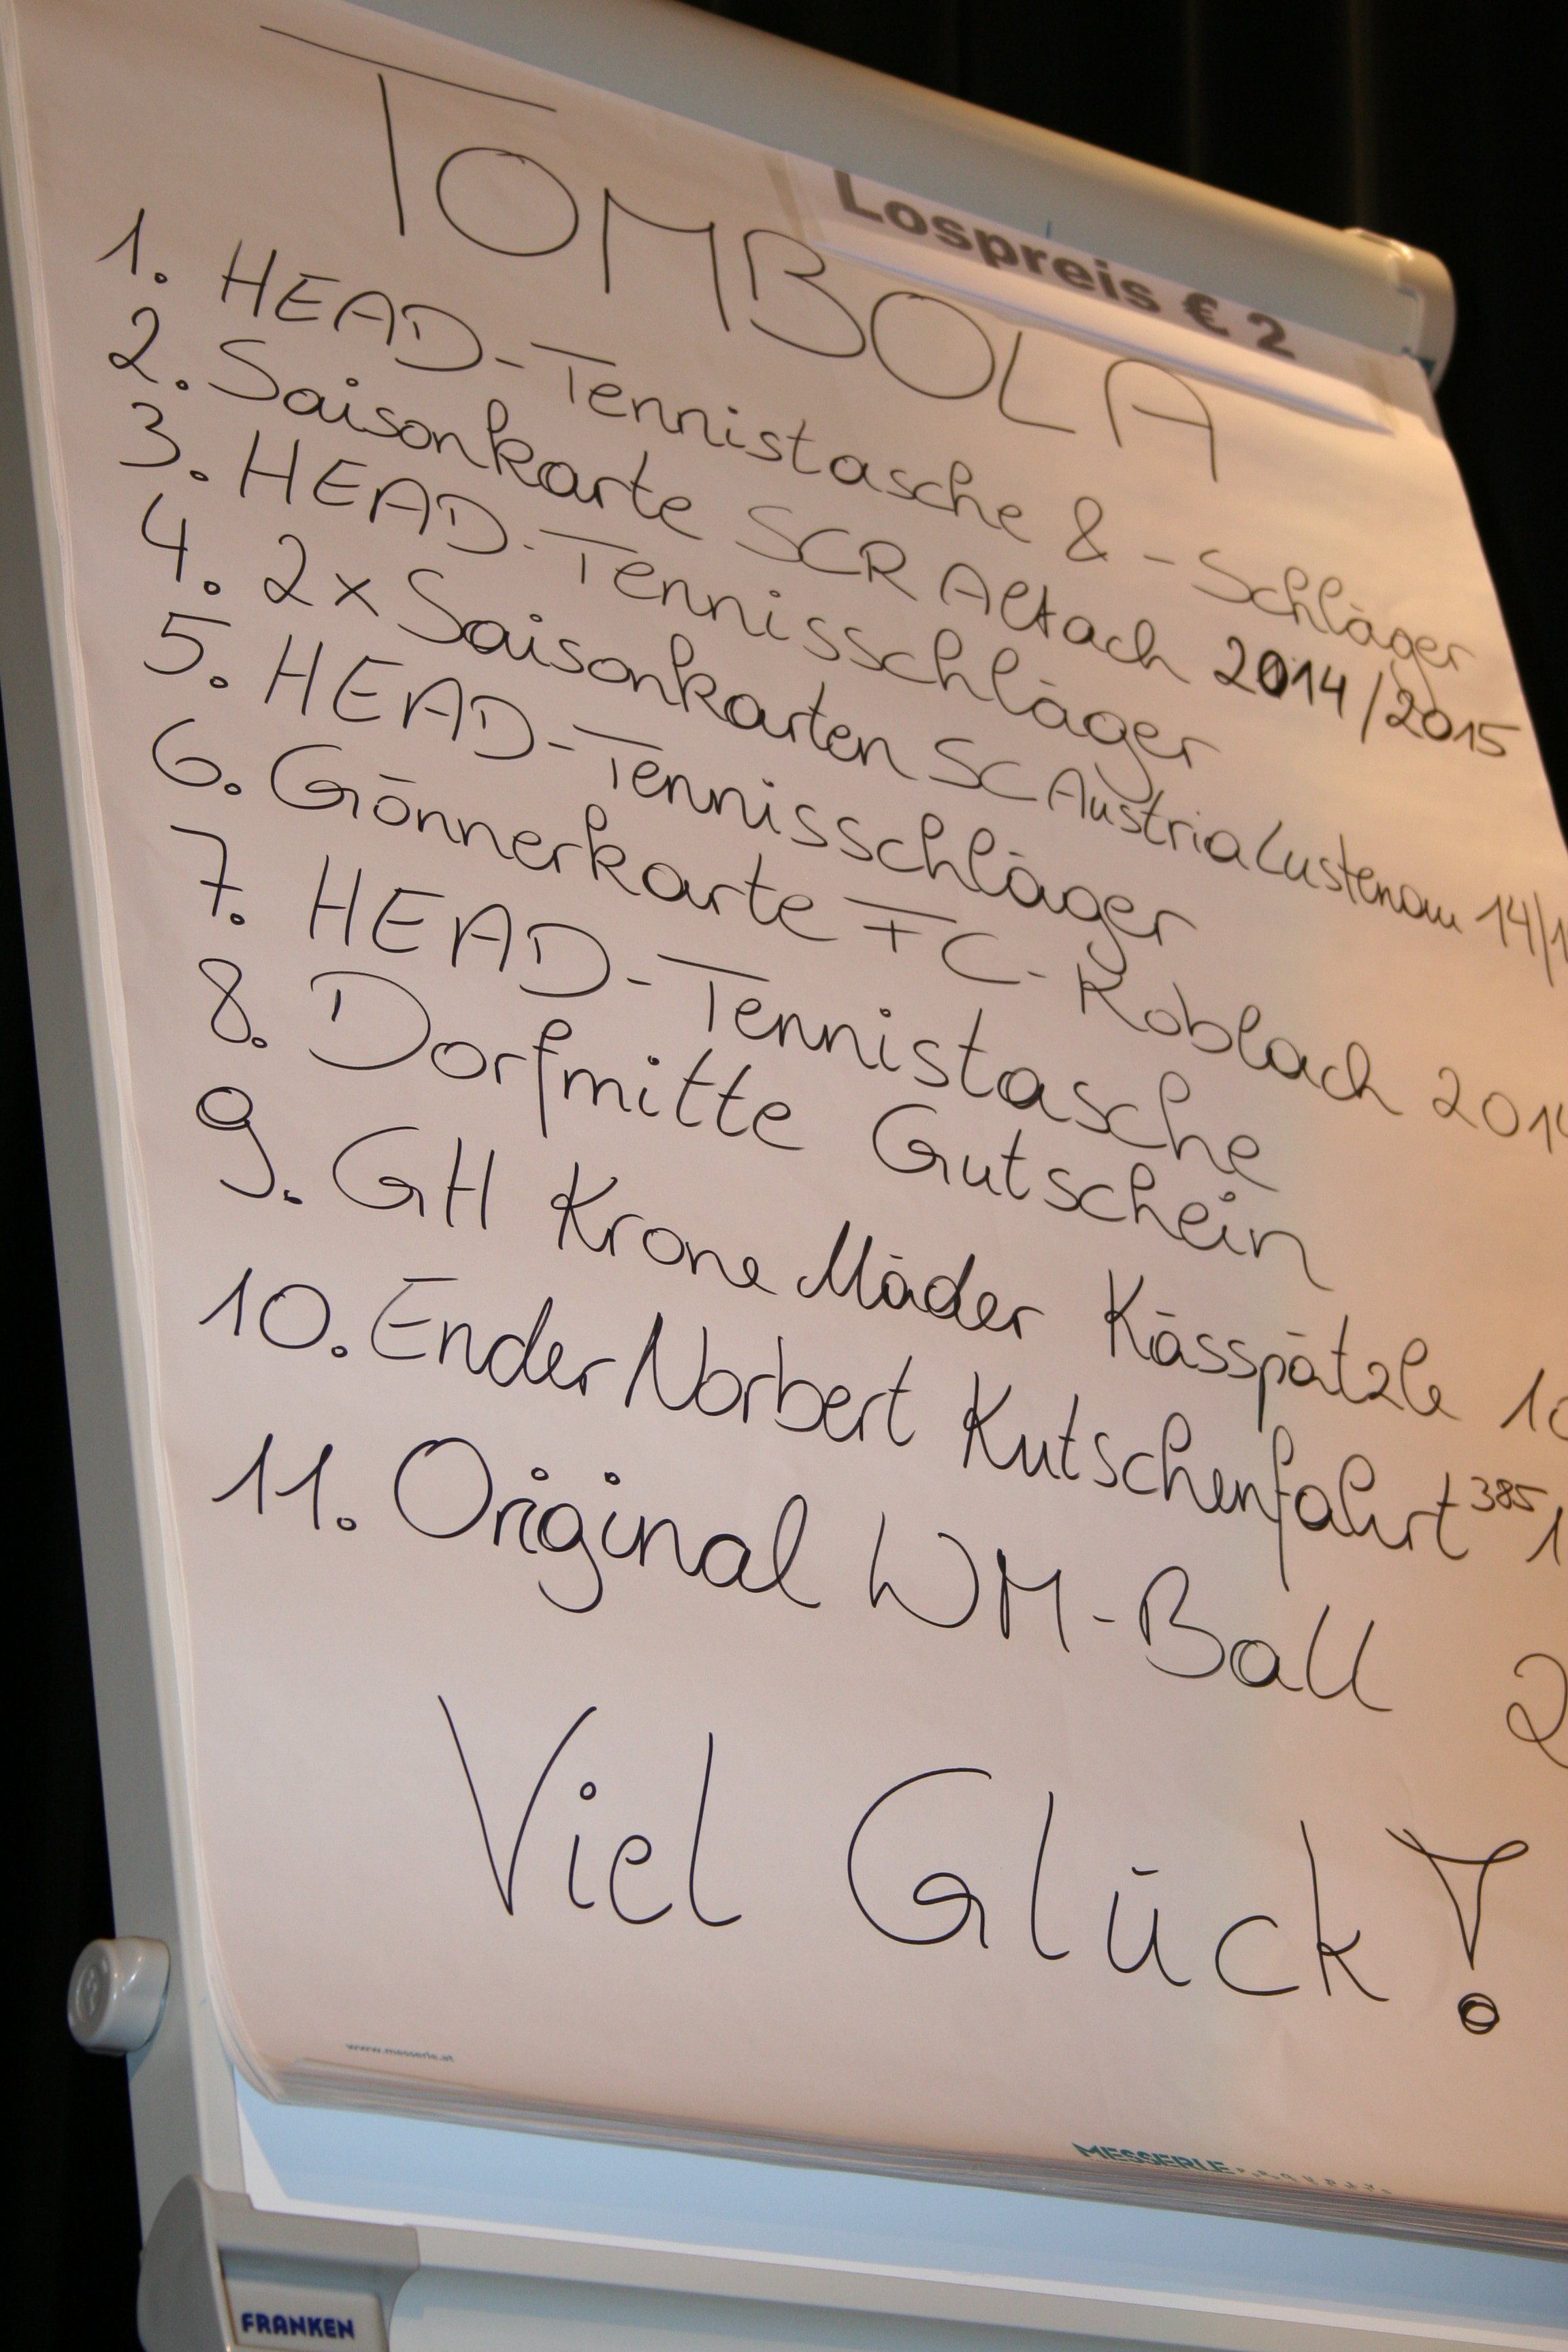 Lospreis € 2
TOMBOLA
1. HEAD-Tennistasche & -Schläger
2. Saisonkarte SCR Altach 2014/2015
3. HEAD-Tennisschläger
4. 2x Saisonkarten SC Austria Lustenau 14/1
5. HEAD-Tennisschläger
6. Gönnerkarte FC-Koblach 2014
7. HEAD-Tennistasche
8. Dorfmitte Gutschein
9. GH Krone Mäder Kässpätzle
10. Ender Norbert Kutschenfahrt 385
11. Original WM-Ball 2
Viel Glück!
www.messerle.at
MESSERLE
FRANKEN